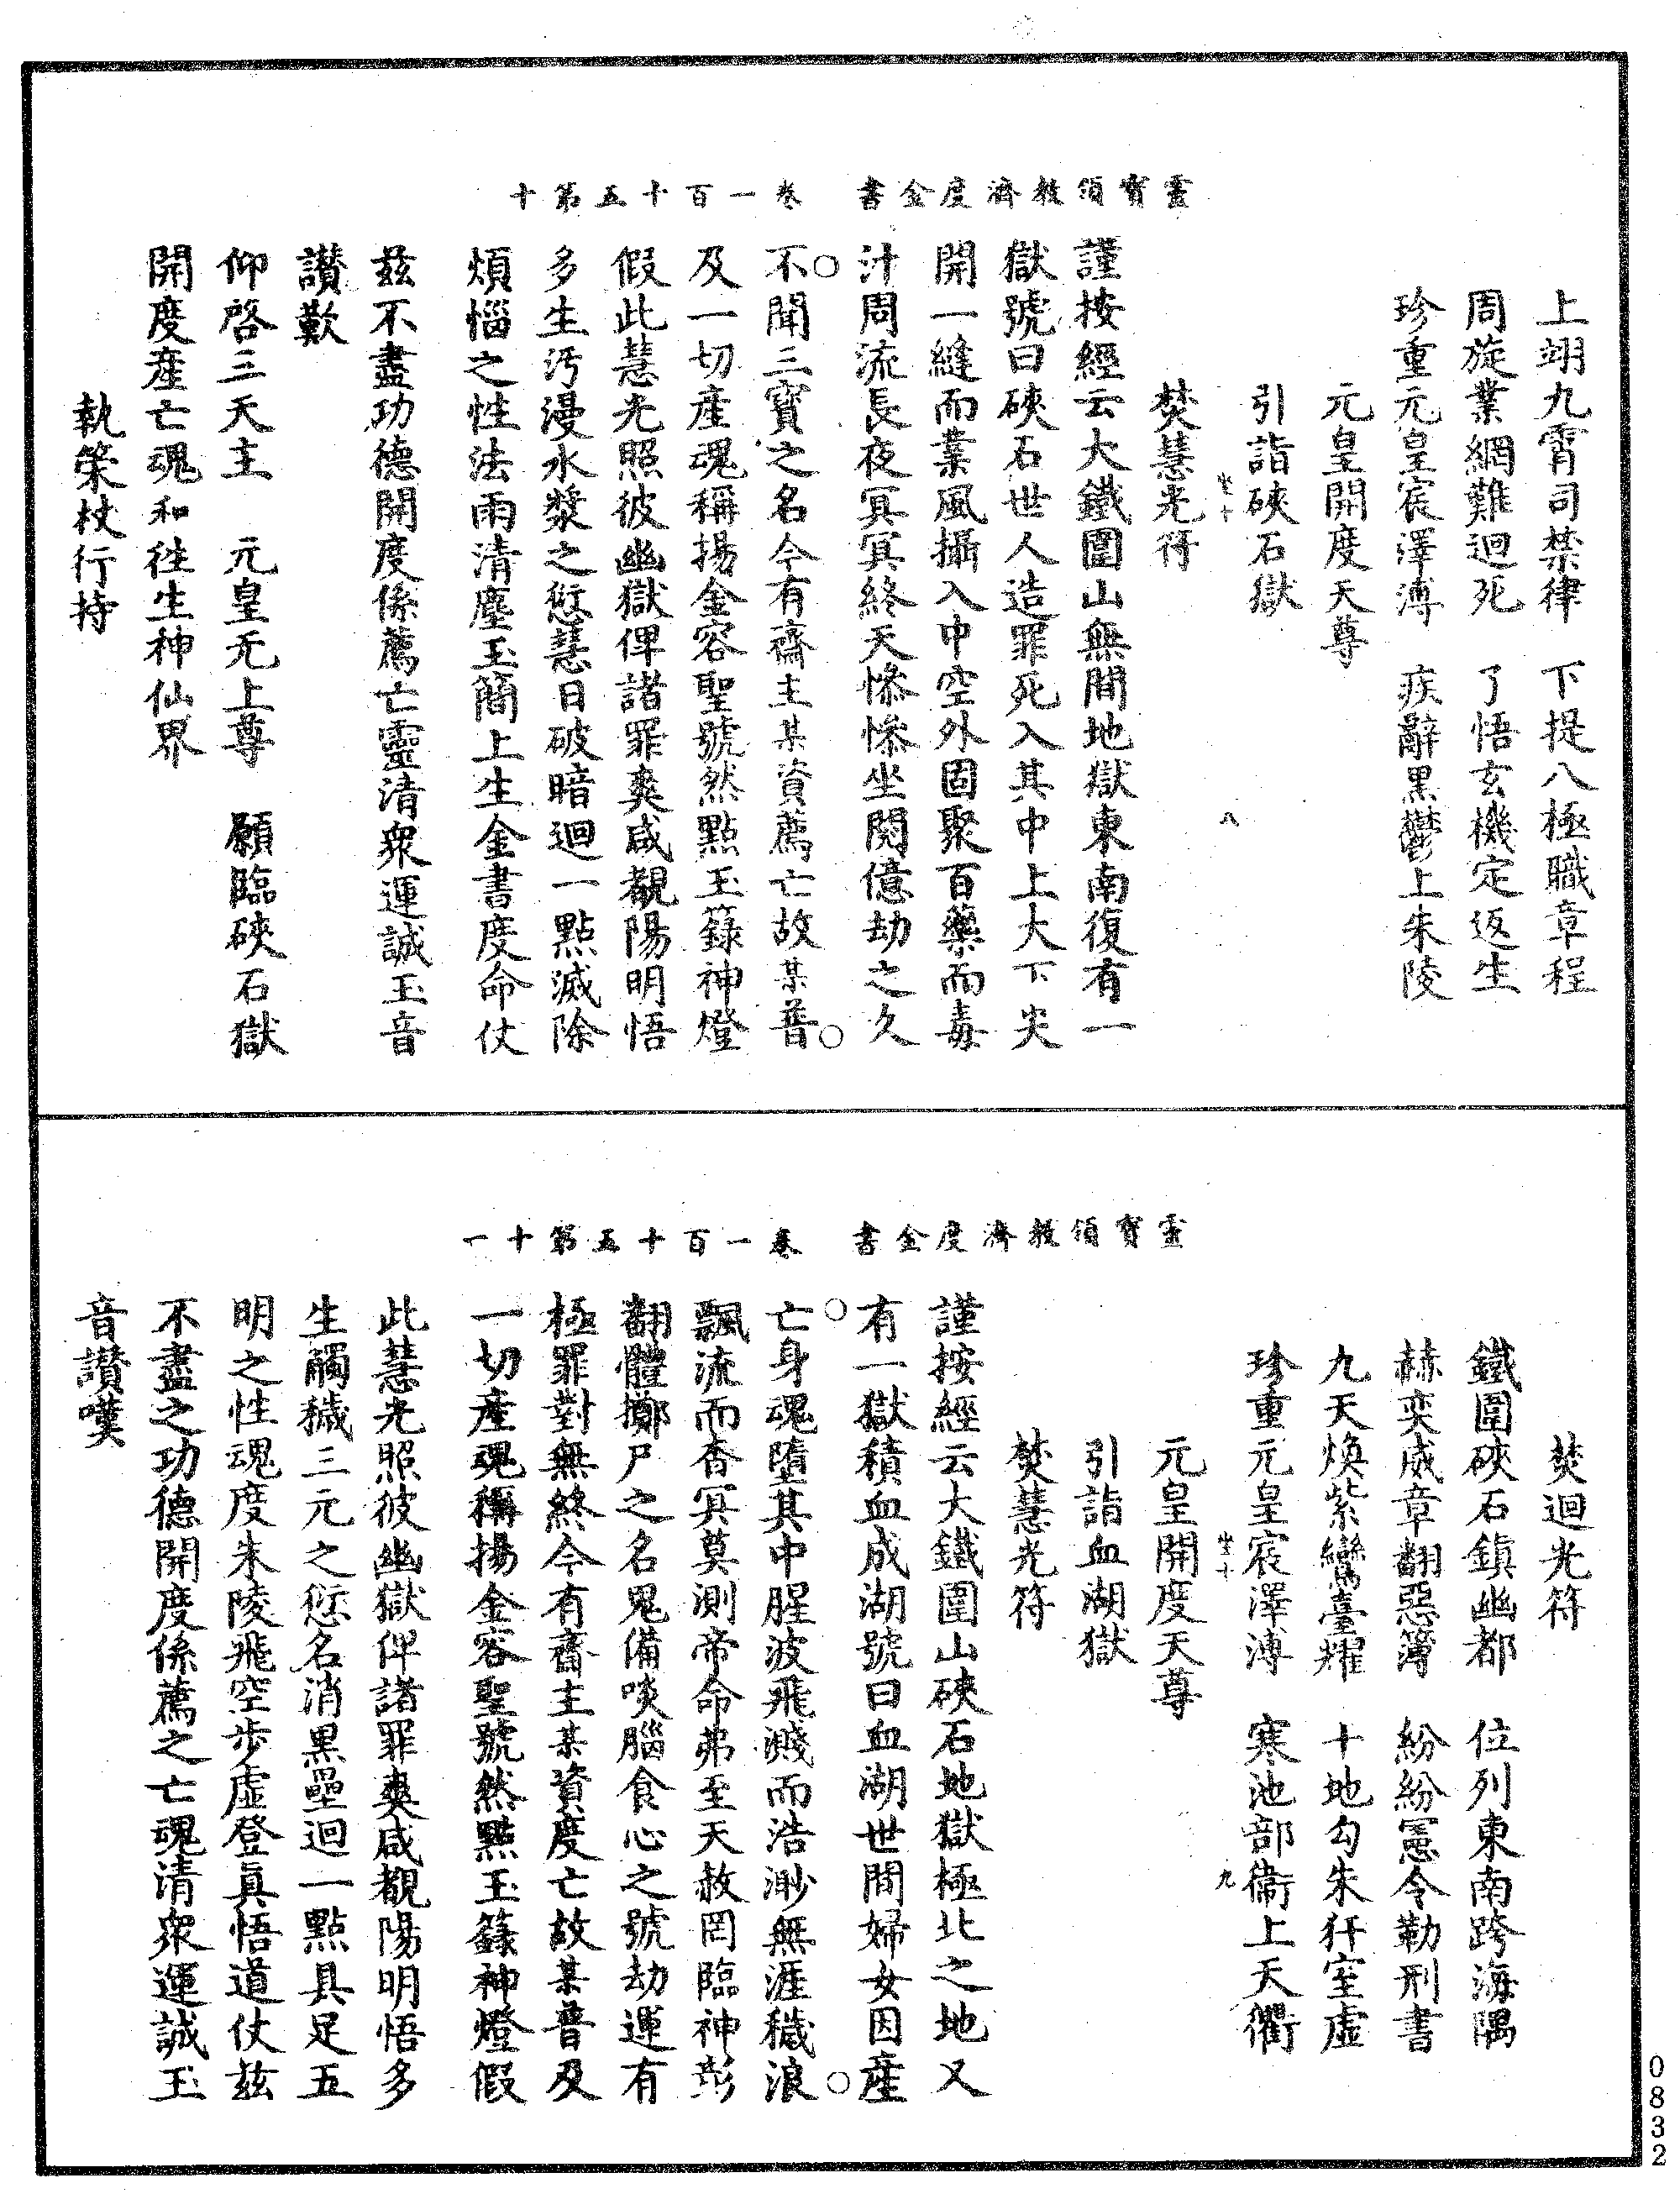 靈寶領教濟度金書　卷一百十五第十
上翊九霄司禁律　下提八極職章程
周旋業網難迴死　了悟玄機定返生
珍重元皇宸澤溥　疾辭黑鬱上朱陵
元皇開度天尊
引詣硤石獄
坐十　八
焚慧光符
謹按經云大鐵圍山無間地獄東南復有一
獄號曰硤石世人造罪死入其中上大下尖
開一縫而業風攝入中空外固聚百藥而毒
汁周流長夜冥冥終天慘慘坐閱億劫之久
不聞三寶之名今有齋主某資薦亡故某普
及一切產魂稱揚金容聖號然點玉籙神燈
假此慧光照彼幽獄俾諸罪爽咸覩陽明悟
多生汚漫水漿之愆慧日破暗迴一點滅除
煩惱之性法雨清塵玉簡上生金書度命仗
茲不盡功德開度係薦亡靈清衆運誠玉音
讃歎
仰啓三天主　元皇无上尊　願臨硤石獄
開度產亡魂和往生神仙界
執策杖行持
靈寶領教濟度金書　卷一百十五第十一
焚迴光符
鐵圍硤石鎮幽都　位列東南跨海隅
赫奕威章翻惡簿　紛紛憲令勒刑書
九天煥紫鸞臺耀　十地勾朱犴室虛
珍重元皇宸澤溥　寒池部衞上天衢
坐十　九
元皇開度天尊
引詣血湖獄
焚慧光符
謹按經云大鐵圍山硤石地獄極北之地又
有一獄積血成湖號曰血湖世間婦女因產
亡身魂墮其中腥波飛濺而浩渺無涯穢浪
飄流而杳冥莫測帝命弗至天赦罔臨神彭
翻體擲尸之名鬼備啖腦食心之號劫運有
極罪對無終今有齋主某資度亡故某普及
一切產魂稱揚金容聖號然點玉籙神燈假
此慧光照彼幽獄俾諸罪爽咸覩陽明悟多
生觸穢三元之愆名消黑壘迴一點具足五
明之性魂度朱陵飛空步虛登眞悟道仗茲
不盡之功德開度係薦之亡魂清衆運誠玉
音讃嘆
0832